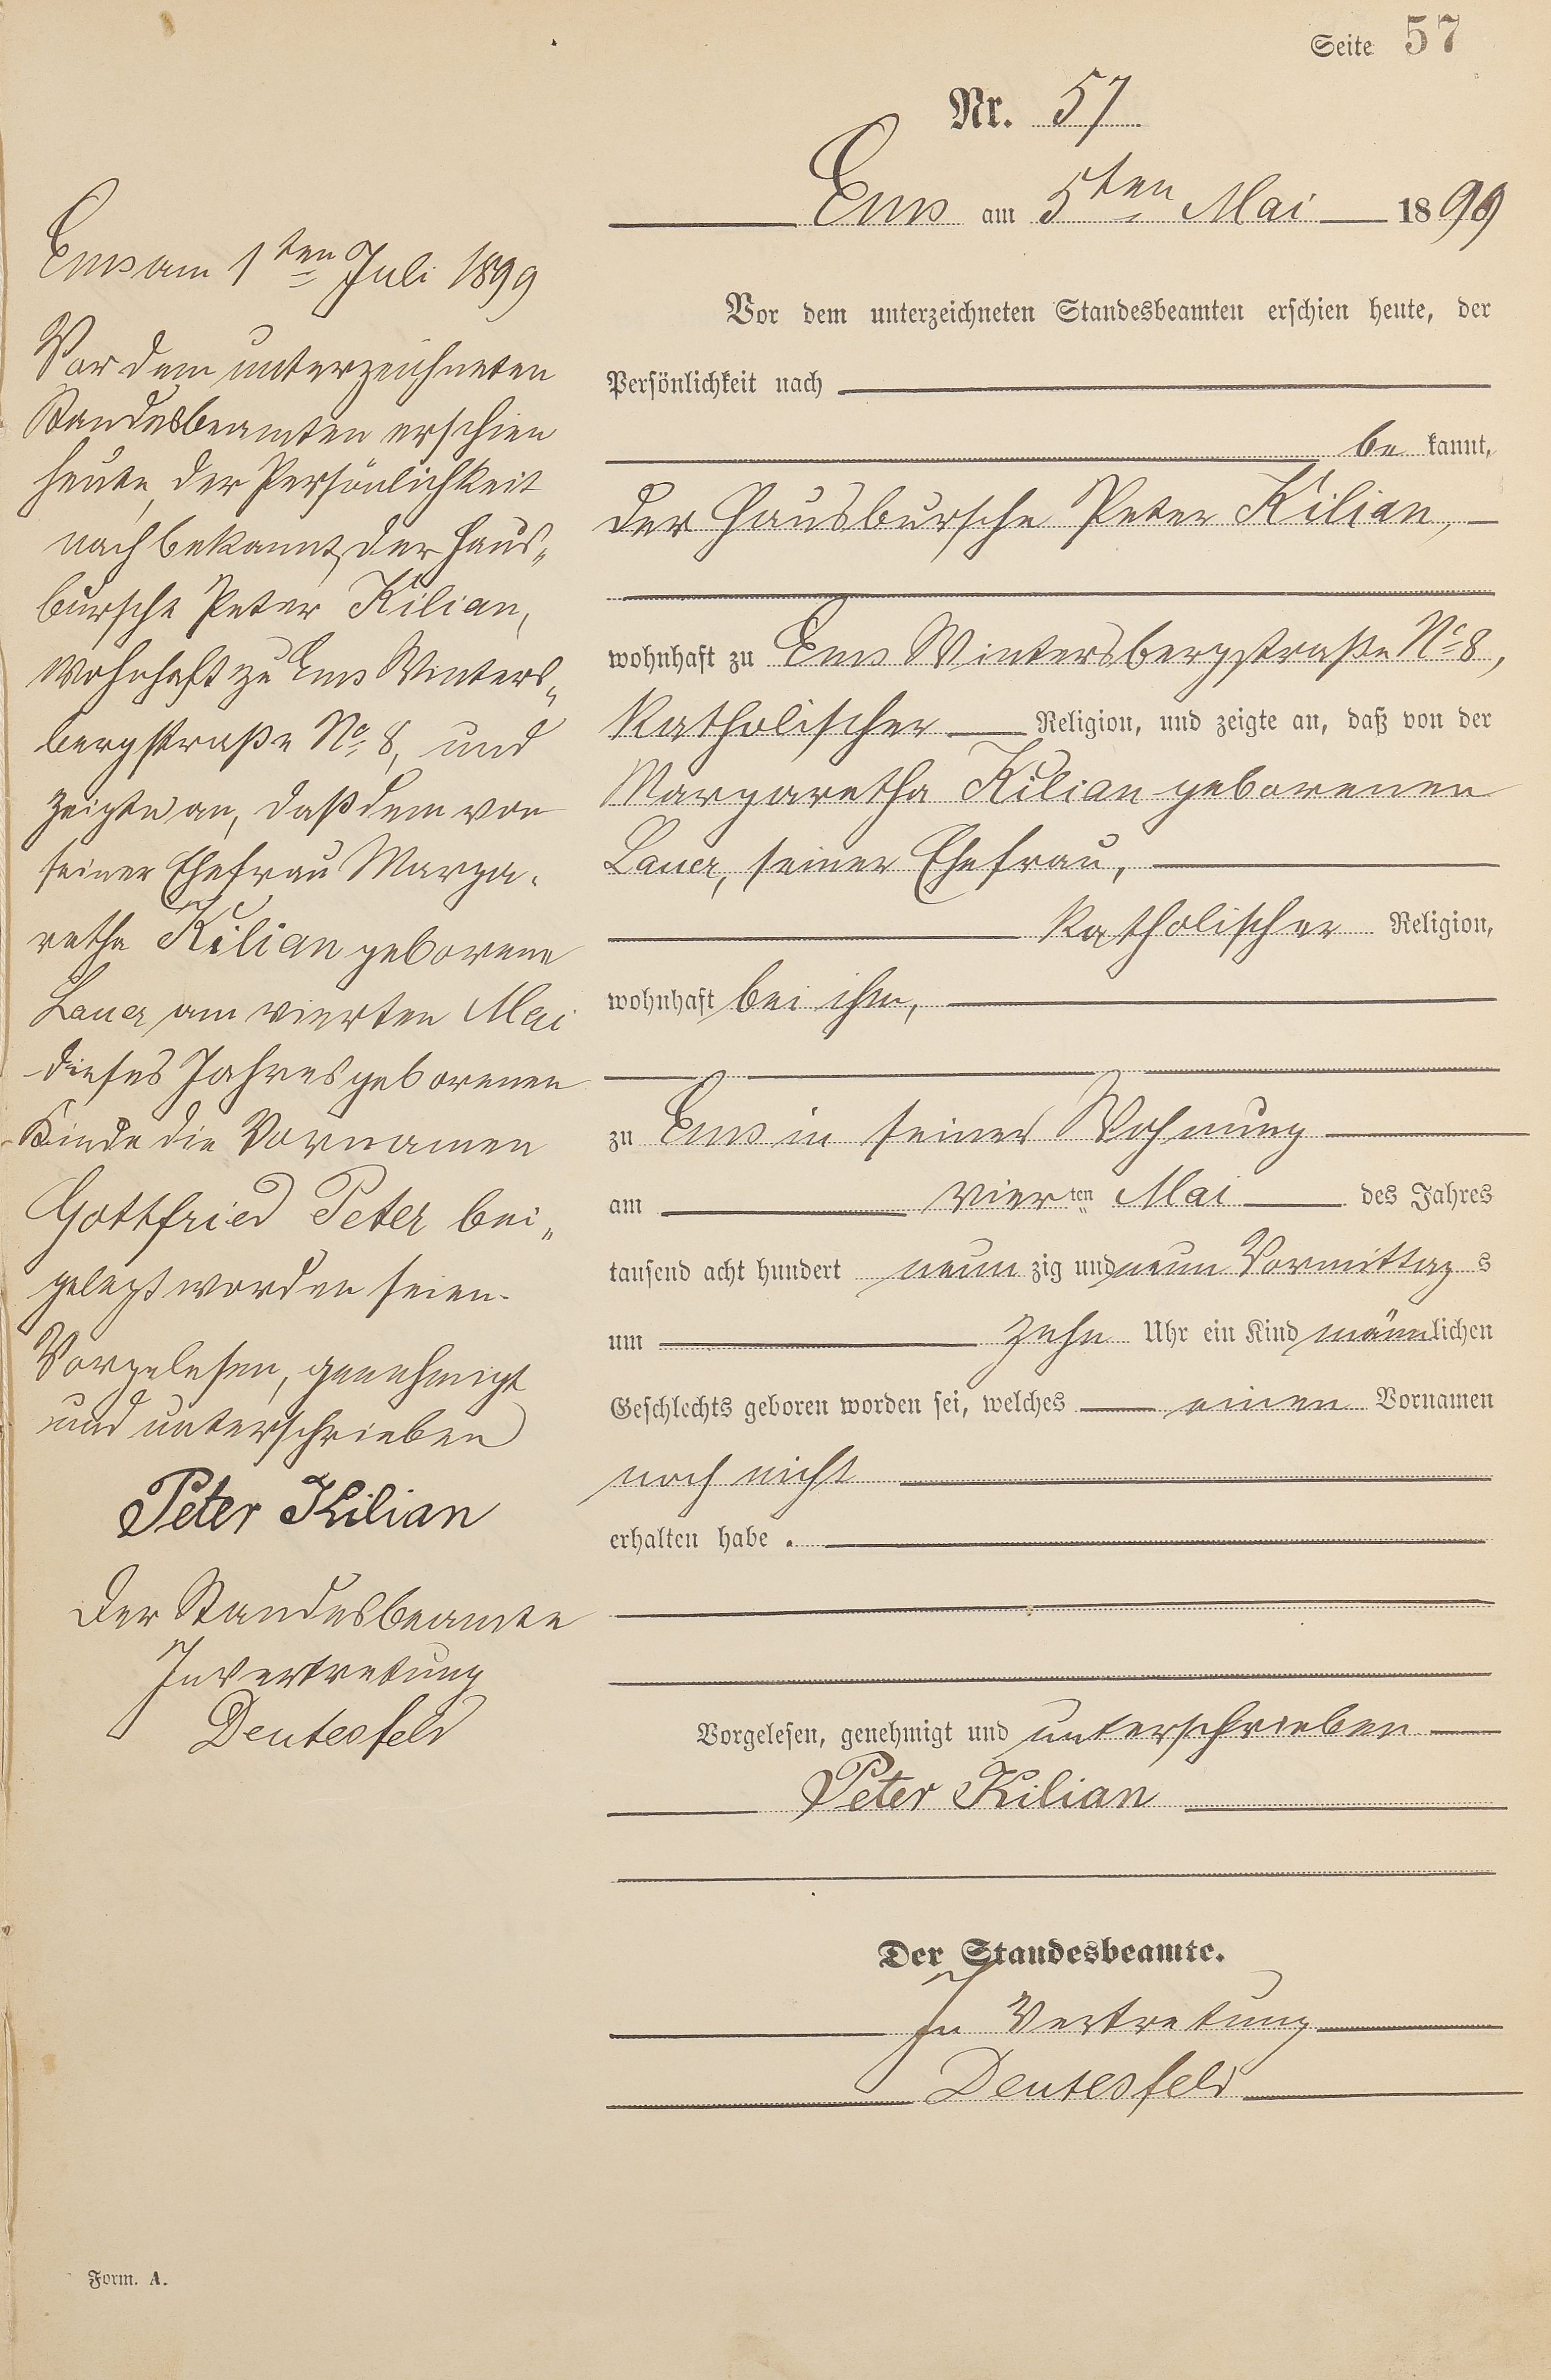 Seite 57
Nr. 57
Ems am 5ten Mai 1899
Vor dem unterzeichneten Standesbeamten erschien heute, der
Persönlichkeit nach
be kannt,
der Hausbursche Peter Kilian,
wohnhaft zu Ems Wintersbergstraße No 8,
katholischer Religion, und zeigte an, daß von der
Margaretha Kilian geborenen
Lauer, seiner Ehefrau,
katholischer Religion,
wohnhaft bei ihm,
zu Ems in seiner Wohnung
am vierten Mai des Jahres
tausend acht hundert neun zig und neun Vormittag s
um zehn Uhr ein Kind männlichen
Geschlechts geboren worden sei, welches einen Vornamen
noch nicht
erhalten habe .
Vorgelesen, genehmigt und unterschrieben
Peter Kilian
Der Standesbeamte.
In Vertretung
Deutesfeld
Ems am 1ten Juli 1899
Vor dem unterzeichneten
Standesbeamten erschien
heute, der Persönlichkeit
nach bekannt, der Haus„
bursche Peter Kilian,
wohnhaft zu Ems Winters„
bergstraße No 8, und
zeigte an, daß dem von
seiner Ehefrau Marga-
retha Kilian geborene
Lauer am vierten Mai
dieses Jahres geborenen
Kinde die Vornamen
Gottfried Peter bei„
gelegt worden seien.
Vorgelesen, genehmigt
und unterschrieben
Peter Kilian
Der Standesbeamte
In Vertretung
Deutesfeld
Form. A.